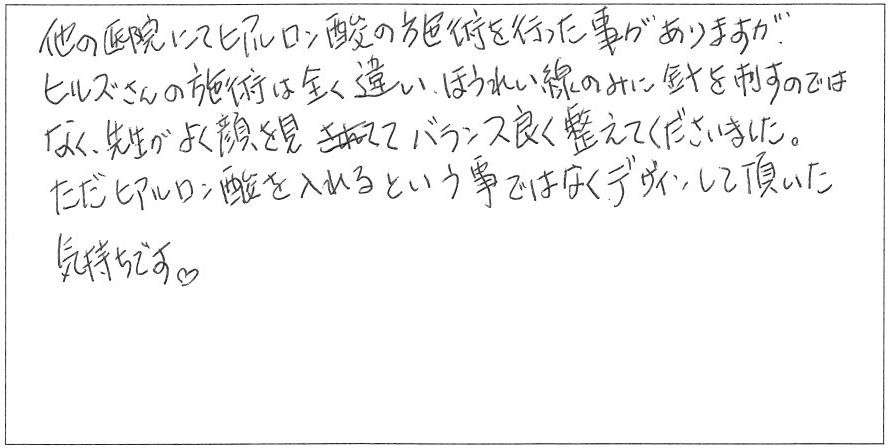 他の医院にてヒアルロン酸の施術を行った事がありますが、
ヒルズさんの施術は全く違い、ほうれい線のみに針を刺すのでは
なく、先生がよく顔を見て バランス良く整えてくださいました。
ただヒアルロン酸を入れるという事ではなくデザインして頂いた
気持ちです♡